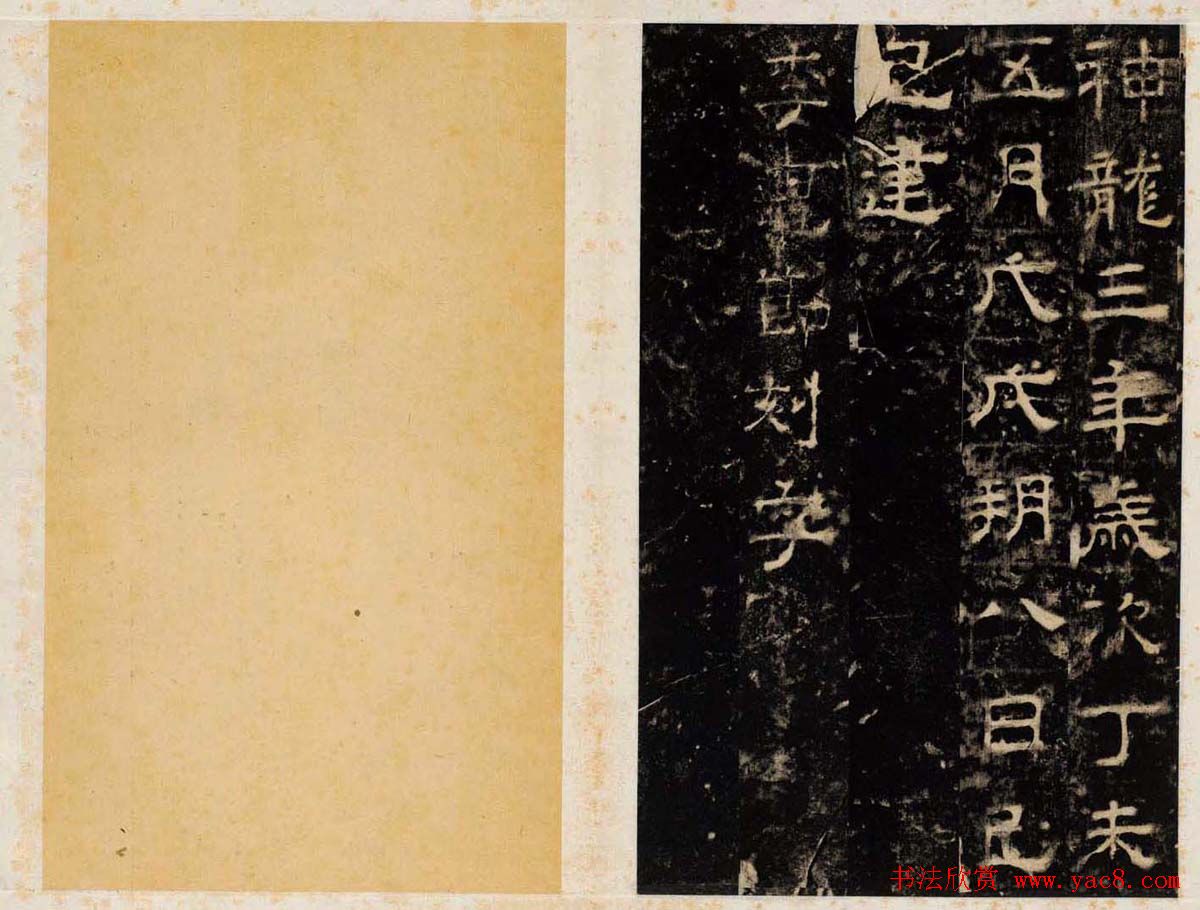 神龍三年歲次丁未
五月戊戌朔八日乙
巳建
李節刻字
書法欣赏 www.yac8.com